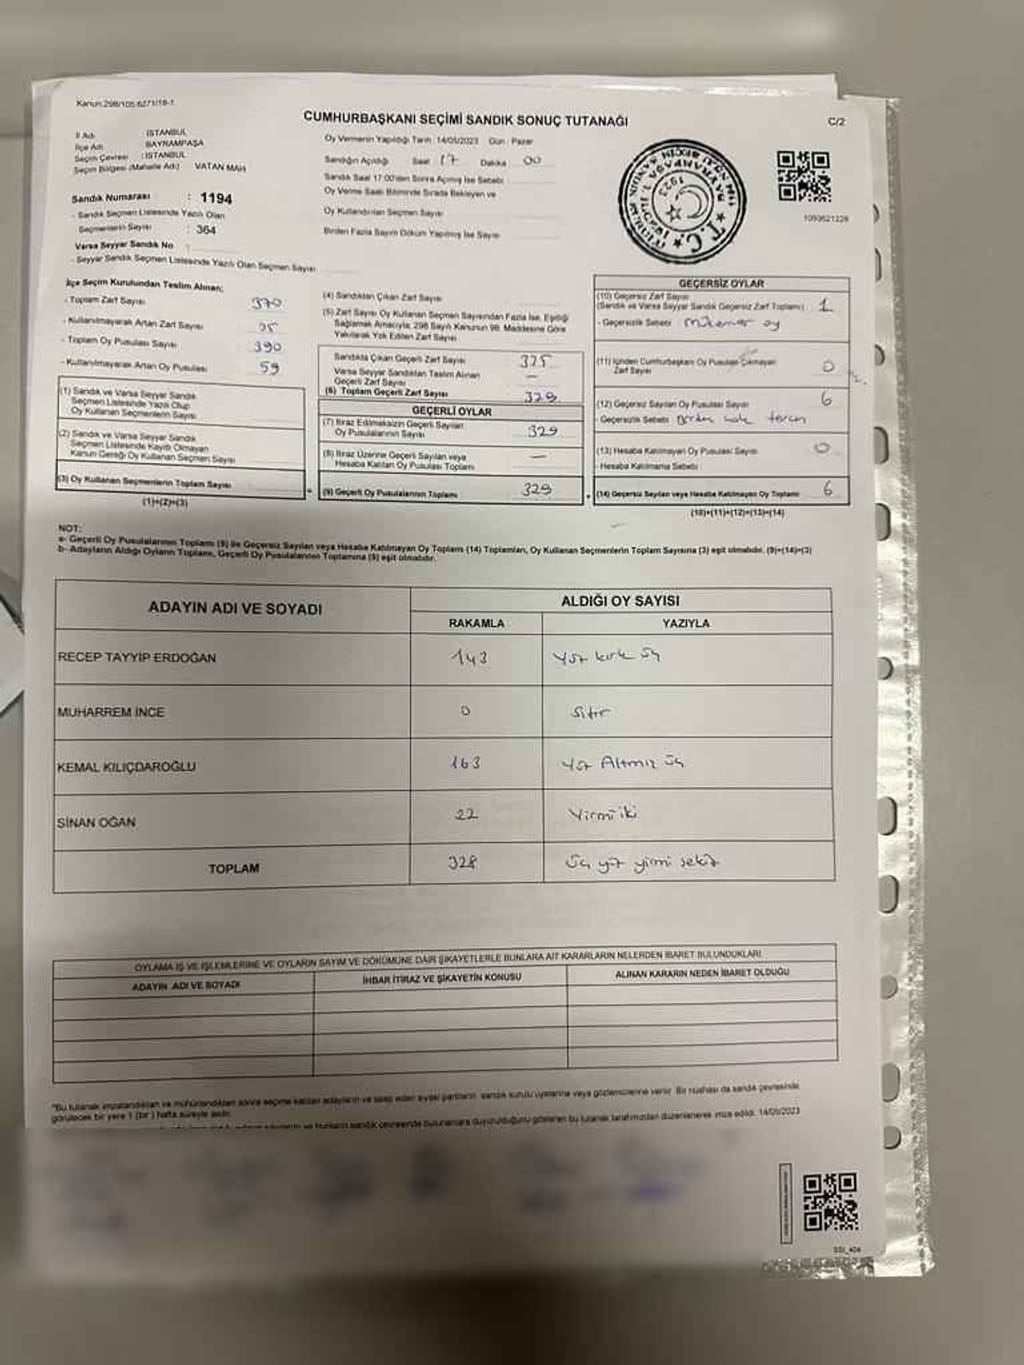 Kanun:298/105.6271/18-1
CUMHURBAŞKANI SEÇİMİ SANDIK SONUÇ TUTANAĞI
C/2
İl Adı : İSTANBUL
İlçe Adı : BAYRAMPAŞA
Seçim Çevresi : İSTANBUL
Seçim Bölgesi (Mahalle Adı) VATAN MAH
Sandık Numarası : 1194
- Sandık Seçmen Listesinde Yazılı Olan
Seçmenlerin Sayısı : 364
Varsa Seyyar Sandık No :
- Seyyar Sandık Seçmen Listesinde Yazılı Olan Seçmen Sayısı
Oy Vermenin Yapıldığı Tarih : 14/05/2023 Gün : Pazar
Sandığın Açıldığı Saat 17 Dakika 00
Sandık Saat 17:00'den Sonra Açılmış İse Sebebi
Oy Verme Saati Bitiminde Sırada Bekleyen ve
Oy Kullandırılan Seçmen Sayısı
Birden Fazla Sayım Döküm Yapılmış İse Sayısı
T.C.
1923
1093621226
İlçe Seçim Kurulundan Teslim Alınan;
- Toplam Zarf Sayısı 370
- Kullanılmayarak Artan Zarf Sayısı 35
- Toplam Oy Pusulası Sayısı 390
- Kullanılmayarak Artan Oy Pusulası 59
(1) Sandık ve Varsa Seyyar Sandık
Seçmen Listesinde Yazılı Olup
Oy Kullanan Seçmenlerin Sayısı
(2) Sandık ve Varsa Seyyar Sandık
Seçmen Listesinde Kayıtlı Olmayan
Kanun Gereği Oy Kullanan Seçmen Sayısı
(3) Oy Kullanan Seçmenlerin Toplam Sayısı
(1)+(2)=(3)
(4) Sandıktan Çıkan Zarf Sayısı
(5) Zarf Sayısı Oy Kullanan Seçmen Sayısından Fazla İse, Eşitliği
Sağlamak Amacıyla, 298 Sayılı Kanunun 98. Maddesine Göre
Yakılarak Yok Edilen Zarf Sayısı
Sandıkta Çıkan Geçerli Zarf Sayısı 335
Varsa Seyyar Sandıktan Teslim Alınan
Geçerli Zarf Sayısı —
(6) Toplam Geçerli Zarf Sayısı 329
GEÇERLİ OYLAR
(7) İtiraz Edilmeksizin Geçerli Sayılan
Oy Pusulalarının Sayısı 329
(8) İtiraz Üzerine Geçerli Sayılan veya
Hesaba Katılan Oy Pusulası Toplamı —
(9) Geçerli Oy Pusulalarının Toplamı 329
GEÇERSİZ OYLAR
(10) Geçersiz Zarf Sayısı
(Sandık ve Varsa Seyyar Sandık Geçersiz Zarf Toplamı) 1
- Geçersizlik Sebebi mükerrer oy
(11) İçinden Cumhurbaşkanı Oy Pusulası Çıkmayan
Zarf Sayısı 0
(12) Geçersiz Sayılan Oy Pusulası Sayısı 6
- Geçersizlik Sebebi Birden tercih
(13) Hesaba Katılmayan Oy Pusulası Sayısı 0
- Hesaba Katılmama Sebebi
(14) Geçersiz Sayılan veya Hesaba Katılmayan Oy Toplamı 6
(10)+(11)+(12)+(13)=(14)
NOT:
a- Geçerli Oy Pusulalarının Toplamı (9) ile Geçersiz Sayılan veya Hesaba Katılmayan Oy Toplam (14) Toplamları, Oy Kullanan Seçmenlerin Toplam Sayısına (3) eşit olmalıdır. (9)+(14)=(3)
b- Adayların Aldığı Oyların Toplamı, Geçerli Oy Pusulalarının Toplamına (9) eşit olmalıdır.
ADAYIN ADI VE SOYADI
ALDIĞI OY SAYISI
RAKAMLA YAZIYLA
RECEP TAYYİP ERDOĞAN 143 Yüz kırk üç
MUHARREM İNCE 0 Sıfır
KEMAL KILIÇDAROĞLU 163 Yüz Altmış üç
SİNAN OĞAN 22 Yirmi iki
TOPLAM 328 Üç yüz yirmi sekiz
OYLAMA İŞ VE İŞLEMLERİNE VE OYLARIN SAYIM VE DÖKÜMÜNE DAİR ŞİKAYETLERLE BUNLARA AİT KARARLARIN NELERDEN İBARET BULUNDUKLARI
ADAYIN ADI VE SOYADI İHBAR İTİRAZ VE ŞİKAYETİN KONUSU ALINAN KARARIN NEDEN İBARET OLDUĞU
"Bu tutanak imzalandıktan ve mühürlendikten sonra seçime katılan adayların ve talep eden siyasi partilerin sandık kurulu üyelerine veya gözlemcilerine verilir. Bir nüshası da sandık çevresinde
görülecek bir yere 1 (bir) hafta süreyle asılır.
sandık çevresinde bulunanlara duyurulduğunu gösteren bu tutanak tarafımızdan düzenlenerek imza edildi. 14/05/2023